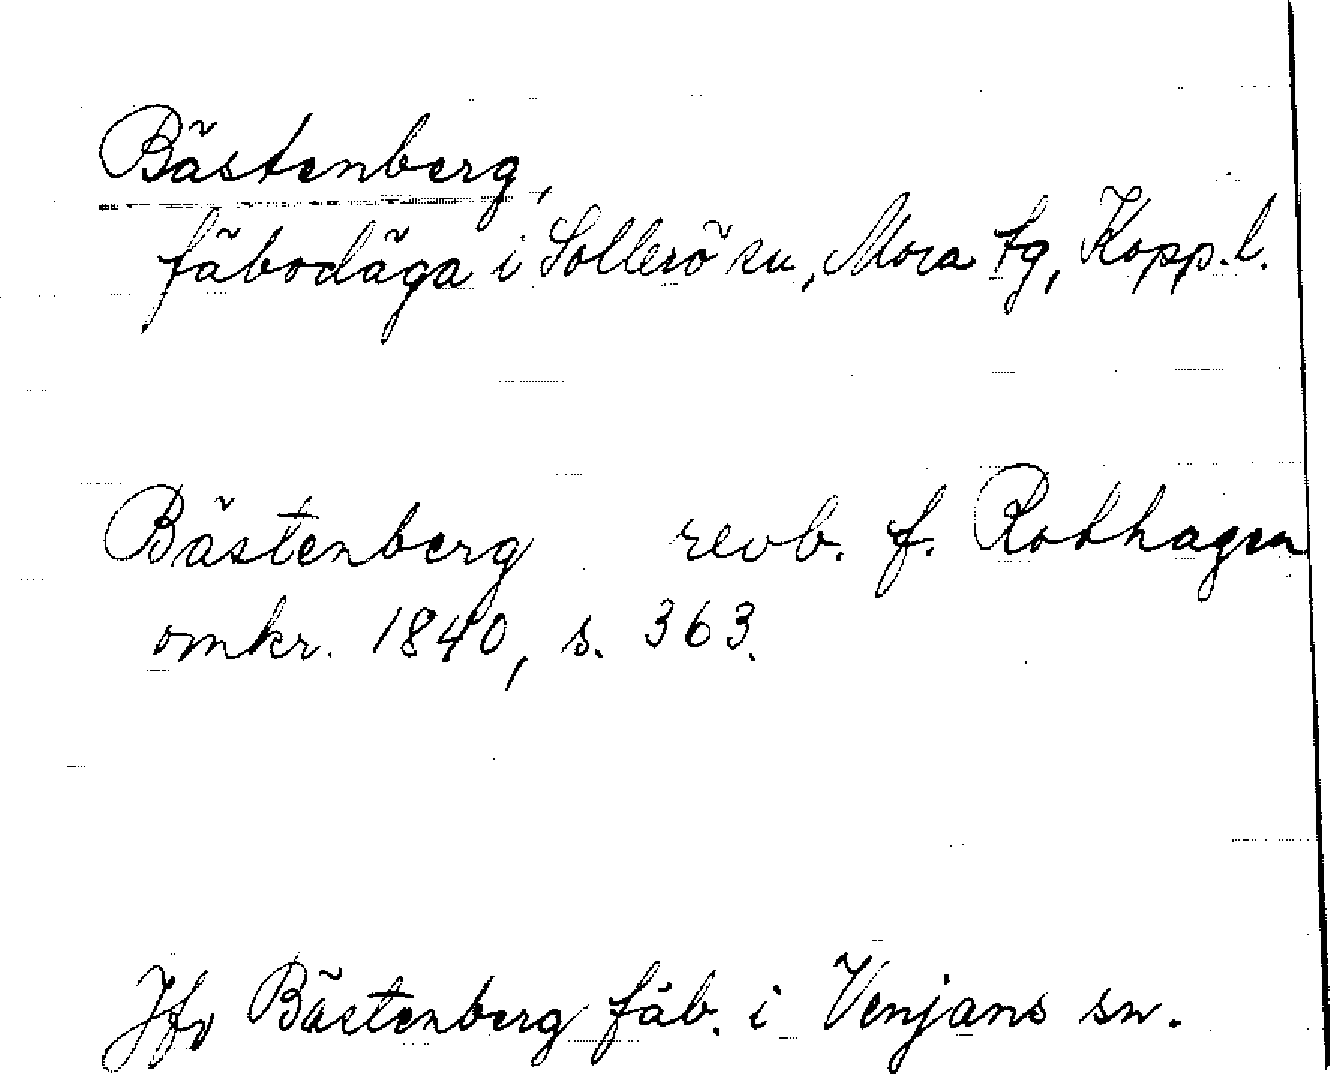 Bästenberg,
fäbodäga i Sollerö sn, Mora tg, Kopp. l.
Bästenberg revb. f. Rothagen
omkr. 1840, s. 363.
Jfr Bästenberg fäb. i Venjans sn.